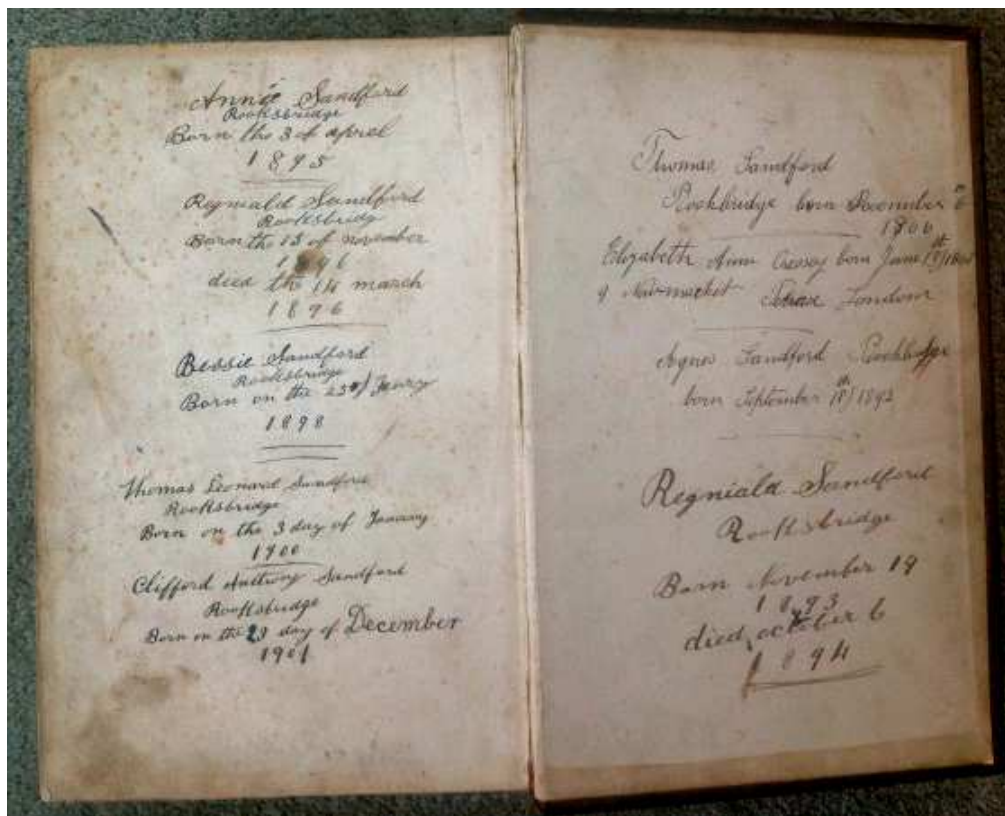 Annie Sandford
Rooksbridge
Born the 3 of april
1895
Regniald Sandford
Rooksbridge
Born the 13 of november
1896
died the 14 march
1896
Bessie Sandford
Rooksbridge
Born on the
1898
Thomas Leonard Sandford
Rooksbridge
Born on the 3 day of January
1900
Clifford Anthony Sandford
Rooksbridge
Born on the 23 day of December
1901
Thomas Sandford
Rookbridge born December 6th
Elizabeth Ann born June
Newmarket London
Agnes Sandford Rookbridge
born September 18th/1892
Regniald Sandford
Rooksbridge
Born November 19
1893
died october 6
1894